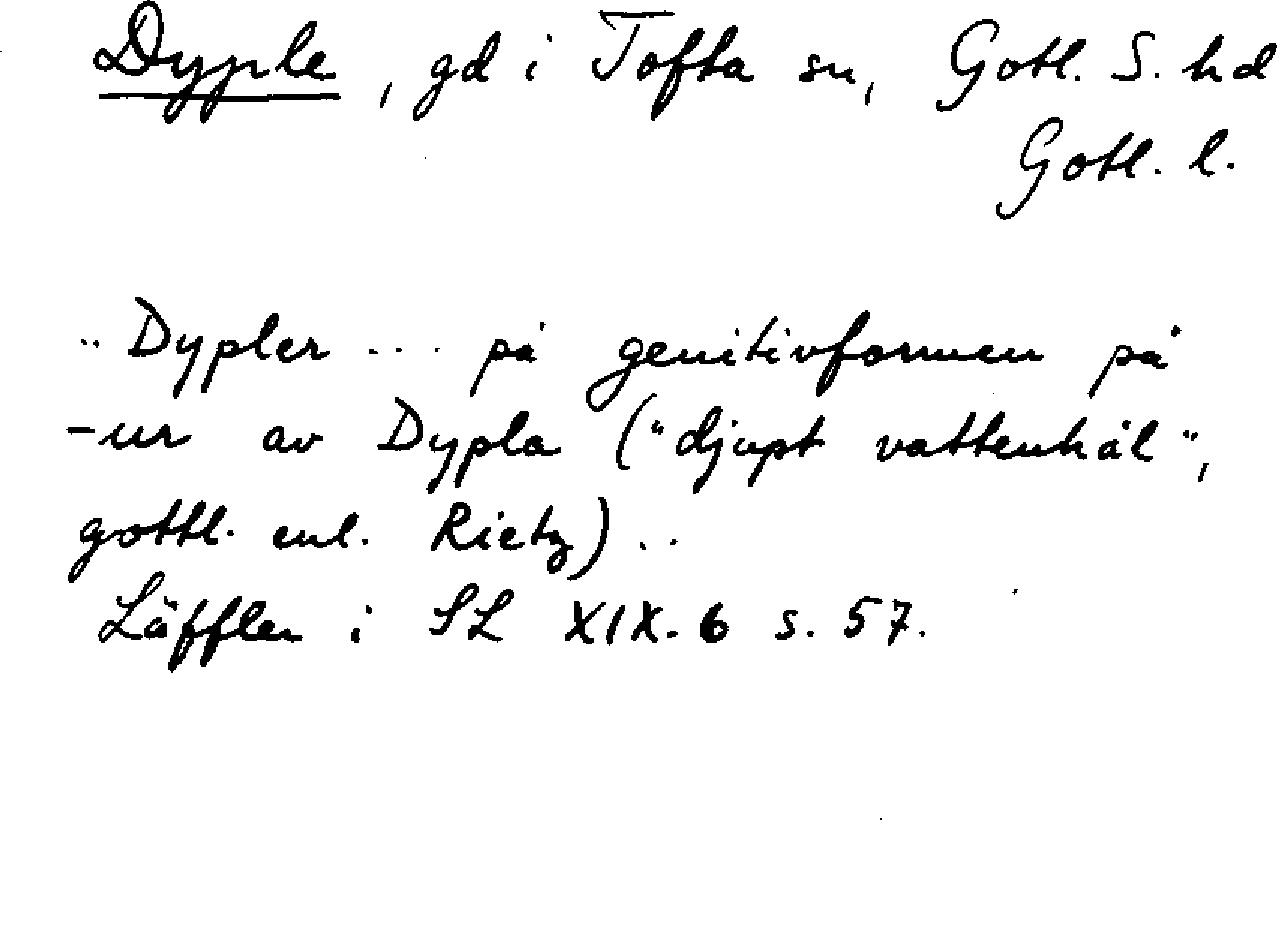 Dyple, gd i Tofta sn, Gotl. S. hd
Gotl. l.
.. Dypler ... på genitivformen på
-ur av Dypla ("djupt vattenhål",
gottl. enl. Rietz) ..
Läffler i SL XIX. 6 s. 57.